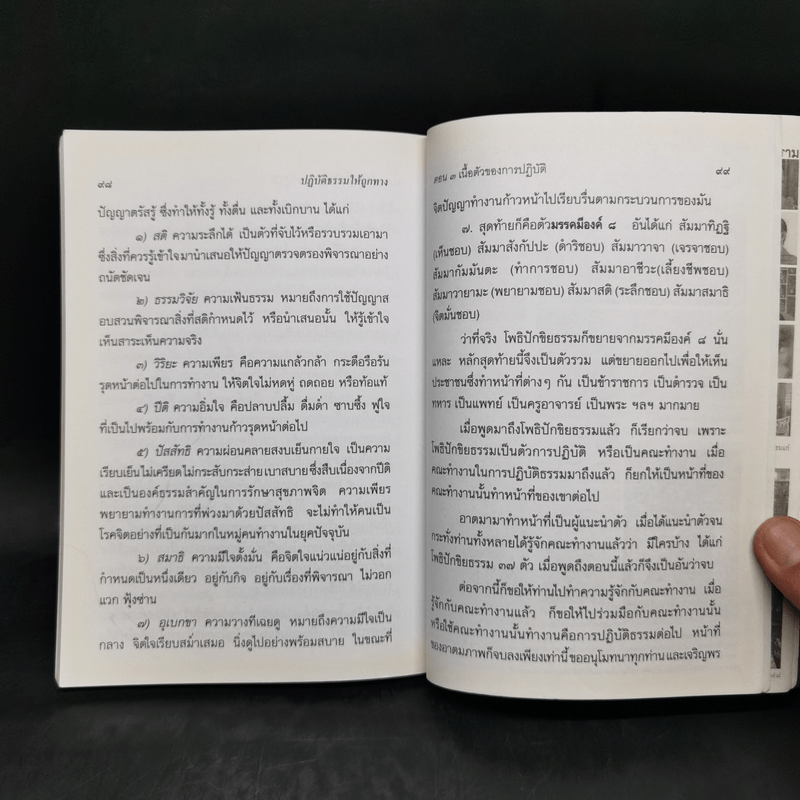 ๙๘ ปฏิบัติธรรมให้ถูกทาง
ปัญญาตรัสรู้ ซึ่งทำให้ทั้งรู้ ทั้งตื่น และทั้งเบิกบาน ได้แก่
๑) สติ ความระลึกได้ เป็นตัวที่จับไว้หรือรวบรวมเอามา
ซึ่งสิ่งที่ควรรู้เข้าใจมานำเสนอให้ปัญญาตรวจตรองพิจารณาอย่าง
ถนัดชัดเจน
๒) ธรรมวิจัย ความเฟ้นธรรม หมายถึงการใช้ปัญญาส
อบสวนพิจารณาสิ่งที่สติกำหนดไว้ หรือนำเสนอนั้น ให้รู้เข้าใจ
เห็นสาระเห็นความจริง
๓) วิริยะ ความเพียร คือความแกล้วกล้า กระตือรือร้น
รุดหน้าต่อไปในการทำงาน ให้จิตใจไม่หดหู่ ถดถอย หรือท้อแท้
๔) ปีติ ความอิ่มใจ คือปลาบปลื้ม ดื่มด่ำ ซาบซึ้ง ฟูใจ
ที่เป็นไปพร้อมกับการทำงานก้าวรุดหน้าต่อไป
๕) ปัสสัทธิ ความผ่อนคลายสงบเย็นกายใจ เป็นความ
เรียบเย็นไม่เครียดไม่กระสับกระส่ายเบาสบายซึ่งสืบเนื่องจากปีติ
และเป็นองค์ธรรมสำคัญในการรักษาสุขภาพจิต ความเพียร
พยายามทำงานการที่พ่วงมาด้วยปัสสัทธิ จะไม่ทำให้คนเป็น
โรคจิตอย่างที่เป็นกันมากในหมู่คนทำงานในยุคปัจจุบัน
๖) สมาธิ ความมีใจตั้งมั่น คือจิตใจแน่วแน่อยู่กับสิ่งที่
กำหนดเป็นหนึ่งเดียว อยู่กับกิจ อยู่กับเรื่องที่พิจารณา ไม่วอก
แวก ฟุ้งซ่าน
๗) อุเบกขา ความวางทีเฉยดู หมายถึงความมีใจเป็น
กลาง จิตใจเรียบสม่ำเสมอ นิ่งดูไปอย่างพร้อมสบาย ในขณะที่
ตอน ๓ เนื้อตัวของการปฏิบัติ ๙๙
จิตปัญญาทำงานก้าวหน้าไปเรียบรื่นตามกระบวนการของมัน
๗. สุดท้ายก็คือตัวมรรคมีองค์ ๘ อันได้แก่ สัมมาทิฏฐิ
(เห็นชอบ) สัมมาสังกัปปะ (ดำริชอบ) สัมมาวาจา (เจรจาชอบ)
สัมมากัมมันตะ (ทำการชอบ) สัมมาอาชีวะ(เลี้ยงชีพชอบ)
สัมมาวายามะ (พยายามชอบ) สัมมาสติ (ระลึกชอบ) สัมมาสมาธิ
(จิตมั่นชอบ)
ว่าที่จริง โพธิปักขิยธรรมก็ขยายจากมรรคมีองค์ ๘ นั่น
แหละ หลักสุดท้ายนี้จึงเป็นตัวรวม แต่ขยายออกไปเพื่อให้เห็น
ประชาชนซึ่งทำหน้าที่ต่างๆ กัน เป็นข้าราชการ เป็นตำรวจ เป็น
ทหาร เป็นแพทย์ เป็นครูอาจารย์ เป็นพระ ฯลฯ มากมาย
เมื่อพูดมาถึงโพธิปักขิยธรรมแล้ว ก็เรียกว่าจบ เพราะ
โพธิปักขิยธรรมเป็นตัวการปฏิบัติ หรือเป็นคณะทำงาน เมื่อ
คณะทำงานในการปฏิบัติธรรมมาถึงแล้ว ก็ยกให้เป็นหน้าที่ของ
คณะทำงานนั้นทำหน้าที่ของเขาต่อไป
อาตมามาทำหน้าที่เป็นผู้แนะนำตัว เมื่อได้แนะนำตัวจน
กระทั่งท่านทั้งหลายได้รู้จักคณะทำงานแล้วว่า มีใครบ้าง ได้แก่
โพธิปักขิยธรรม ๓๗ ตัว เมื่อพูดถึงตอนนี้แล้วก็จึงเป็นอันว่าจบ
ต่อจากนี้ก็ขอให้ท่านไปทำความรู้จักกับคณะทำงาน เมื่อ
รู้จักกับคณะทำงานแล้ว ก็ขอให้ไปร่วมมือกับคณะทำงานนั้น
หรือใช้คณะทำงานนั้นทำงานคือการปฏิบัติธรรมต่อไป หน้าที่
ของอาตมภาพก็จบลงเพียงเท่านี้ขออนุโมทนาทุกท่านและเจริญพร